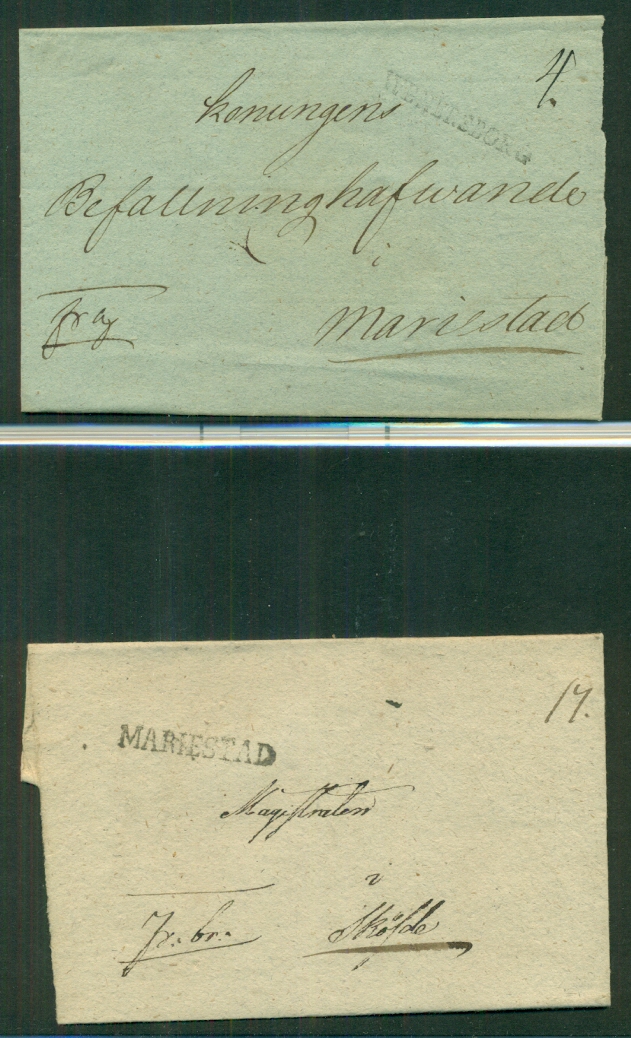 4.
WENERSBORG
Konungens
Befallninghafwande
i
Mariestad
17.
MARIESTAD
Magistraten
i
Fr. br.
Sköfde